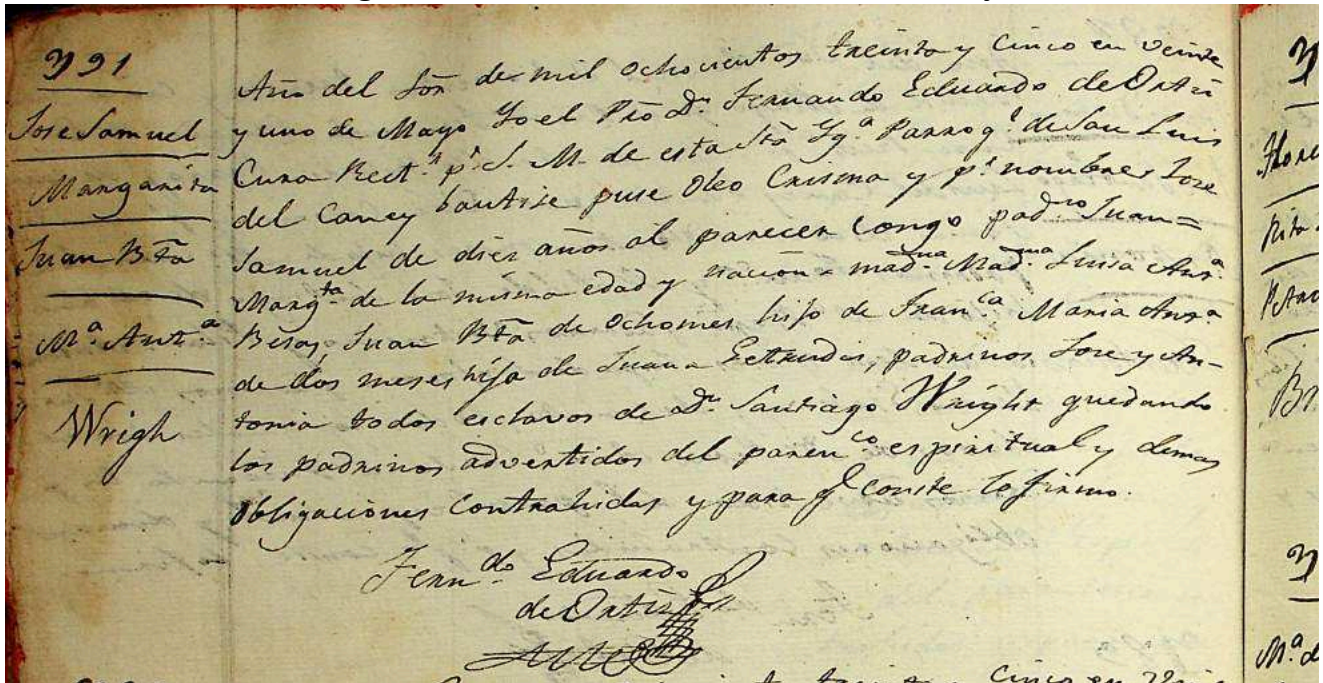 391
Jose Samuel
Margarita
Juan Bta
Ma. Anta.
Wrigh
Año del Sōr de mil ochocientos treinta y cinco en veinte
y uno de Mayo Yo el Pro Dn. Fernando Eduardo de Ortiz
Cura Rect.r pr. S. M. de esta Sta Yga. Parroql. de San Luis
del Caney bautise puse Oleo Crisma y pr. nombres Jose
Samuel de diez años al parecer congo padno Juan=
Margta. de la misma edad y nacion madna. Luisa Anta.
Juan Bta de ocho mes hijo de Franca. Maria Anta
de dos meses hija de Juana Getrudis, padrinos Jose y An-
tonia todos esclavos de Dn. Santiago Wright quedando
los padrinos advertidos del parenco. espiritual y demas
obligaciones contrahidas y para qe conste lo firmo.
Ferndo Eduardo
de Ortiz